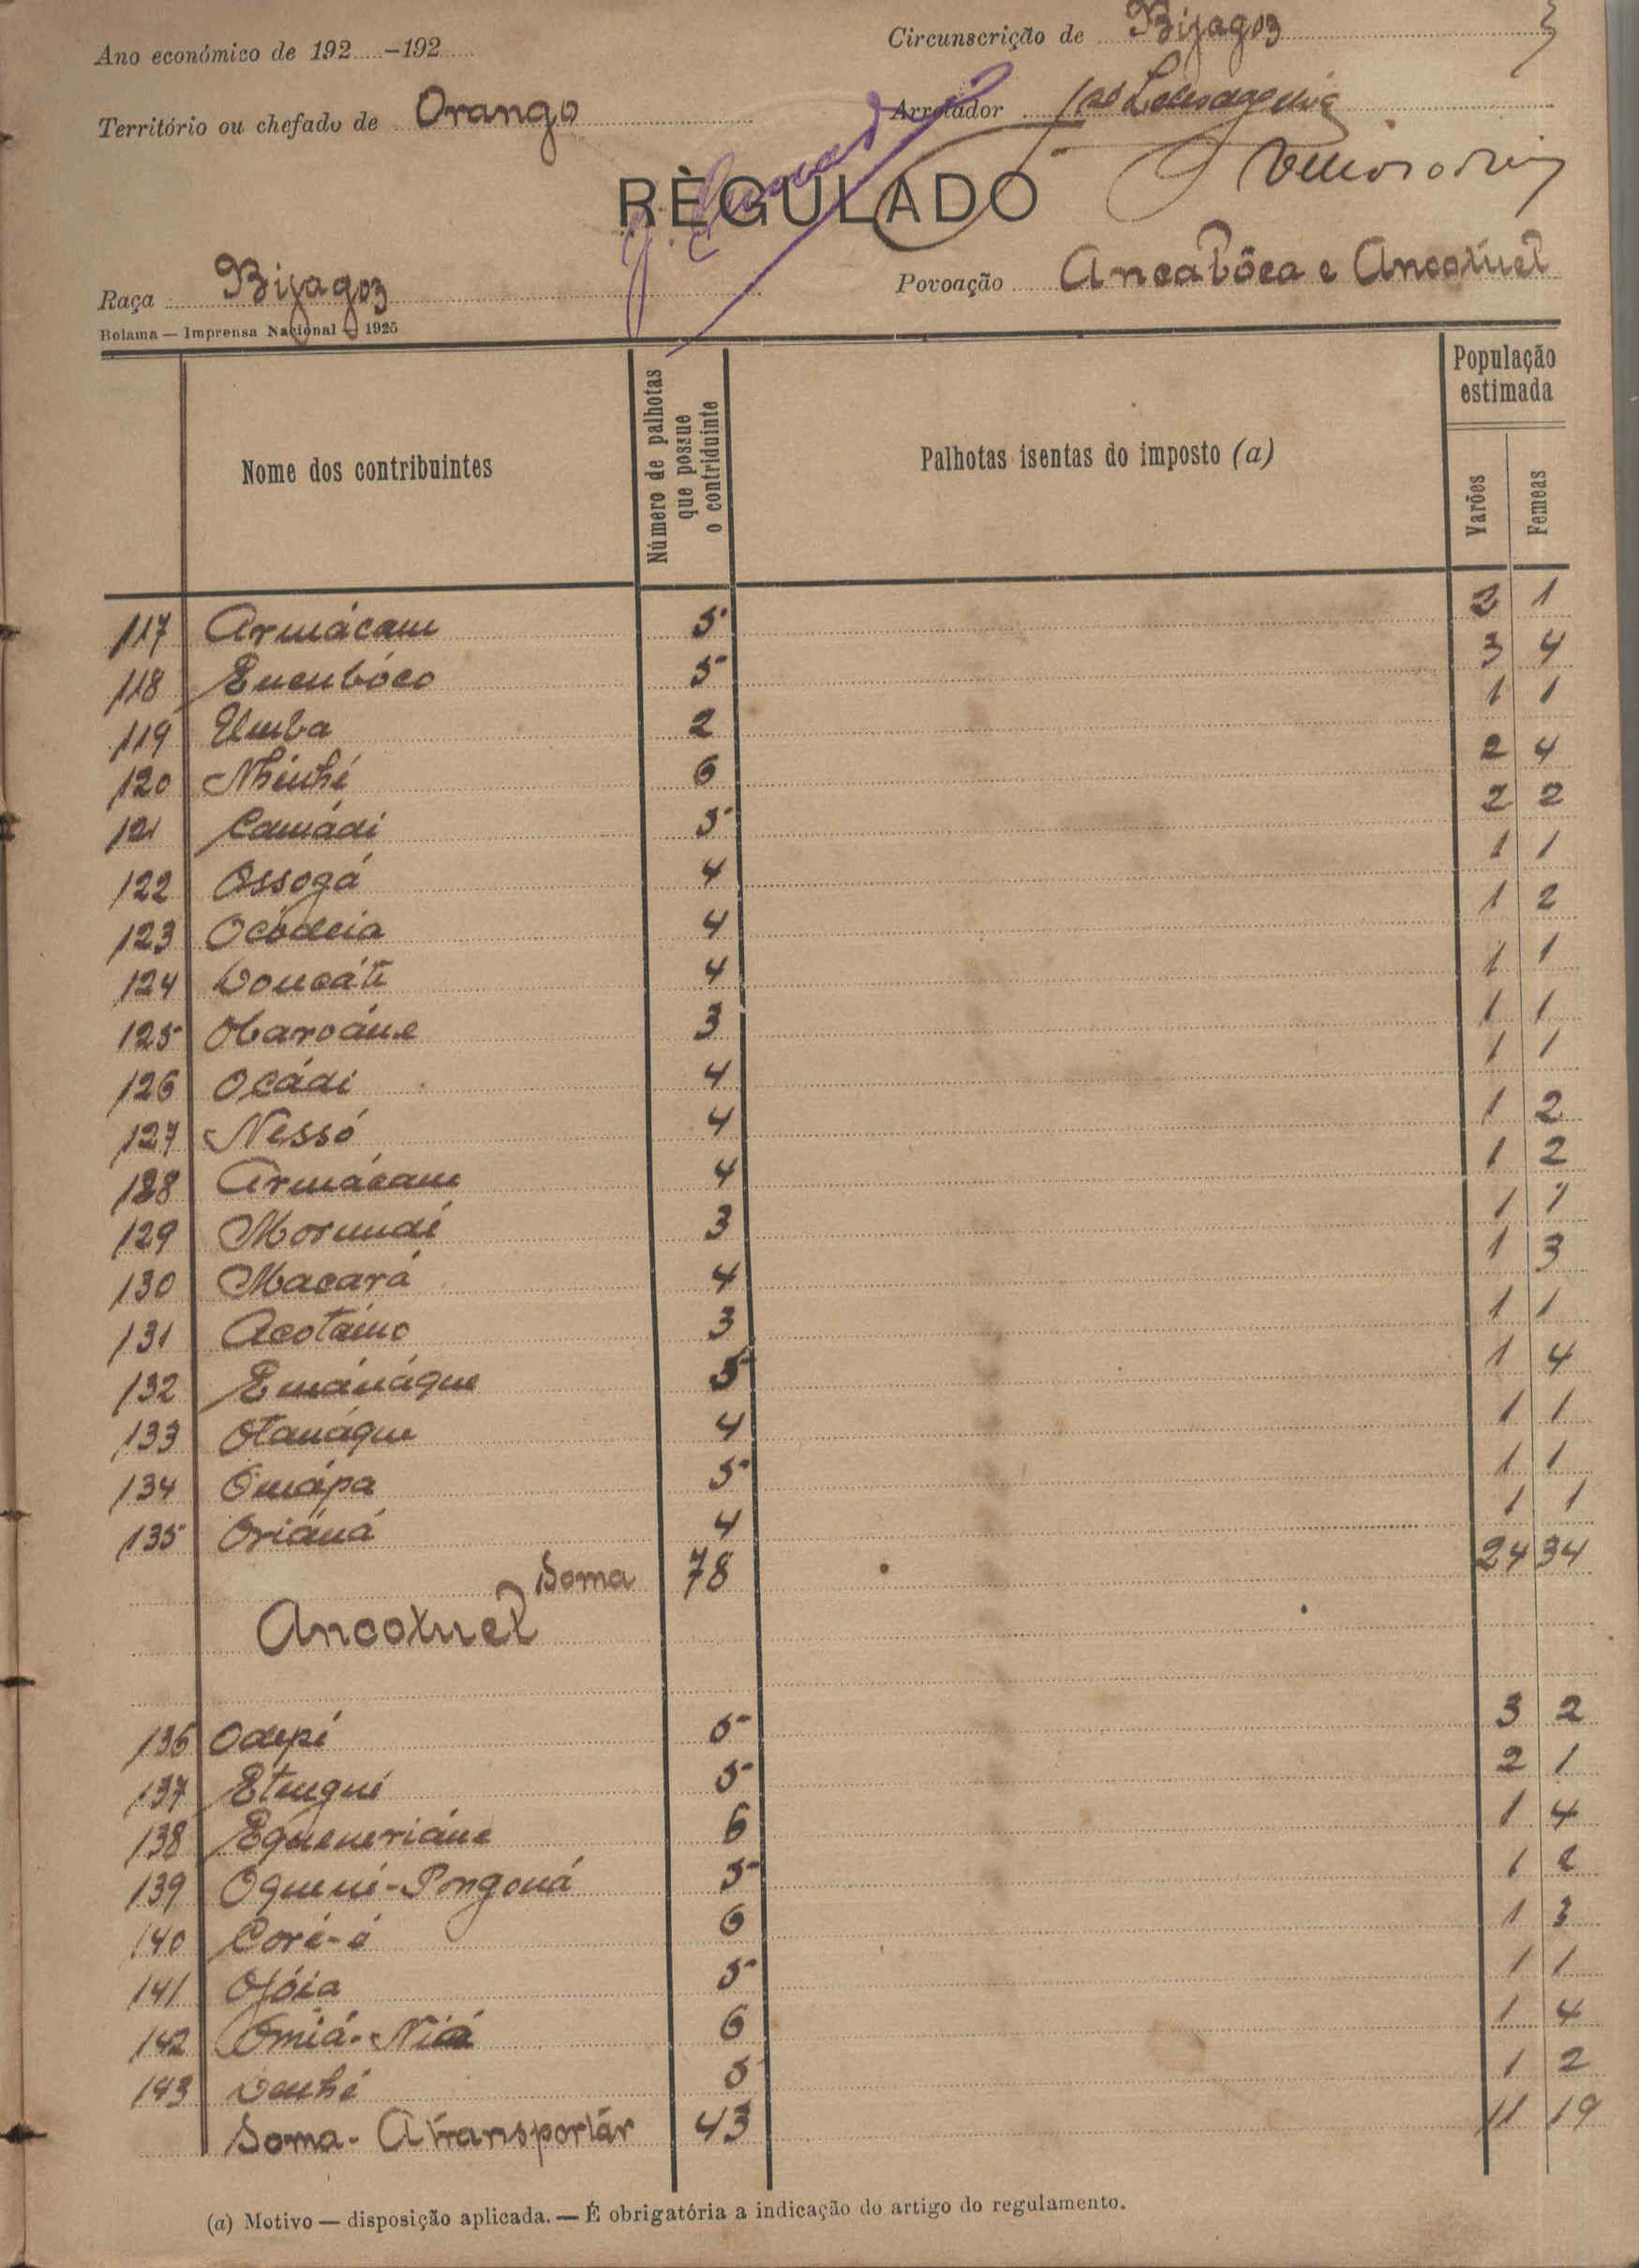 Ano económico de 192.....-192.....
Circunscrição de Bijagoz
Território ou chefado de Orango
Arrolador
RÈGULADO
Raça Bijagoz
Povoação Ancabôca e Ancotuel
Bolama — Imprensa Nacional — 1925
Nome dos contribuintes
Número de palhotas que possue o contriduinte
Palhotas isentas do imposto (a)
População estimada
Varões
Femeas
117 Armácam 5 2 1
118 5 3 4
119 Umba 2 1 1
120 Nhinhé 6 2 4
121 Camádi 5 2 2
122 Ossogá 4 1 1
123 4 1 2
124 4 1 1
125 Obaroáne 3 1 1
126 Ocádi 4 1 1
127 Nessó 4 1 2
128 Armácam 4 1 2
129 3 1 1
130 Macará 4 1 3
131 3 1 1
132 Emánáque 5 1 4
133 Otanáque 4 1 1
134 Omápa 5 1 1
135 Oriáná 4 1 1
Soma 78 24 34
Ancotuel
136 Odepi 5 3 2
137 5 2 1
138 6 1 4
139 5 1 2
140 Coré-é 6 1 3
141 5 1 1
142 Omiá-Niá 6 1 4
143 5 1 2
Soma - A transportár 43 11 19
(a) Motivo — disposição aplicada. — É obrigatória a indicação do artigo do regulamento.